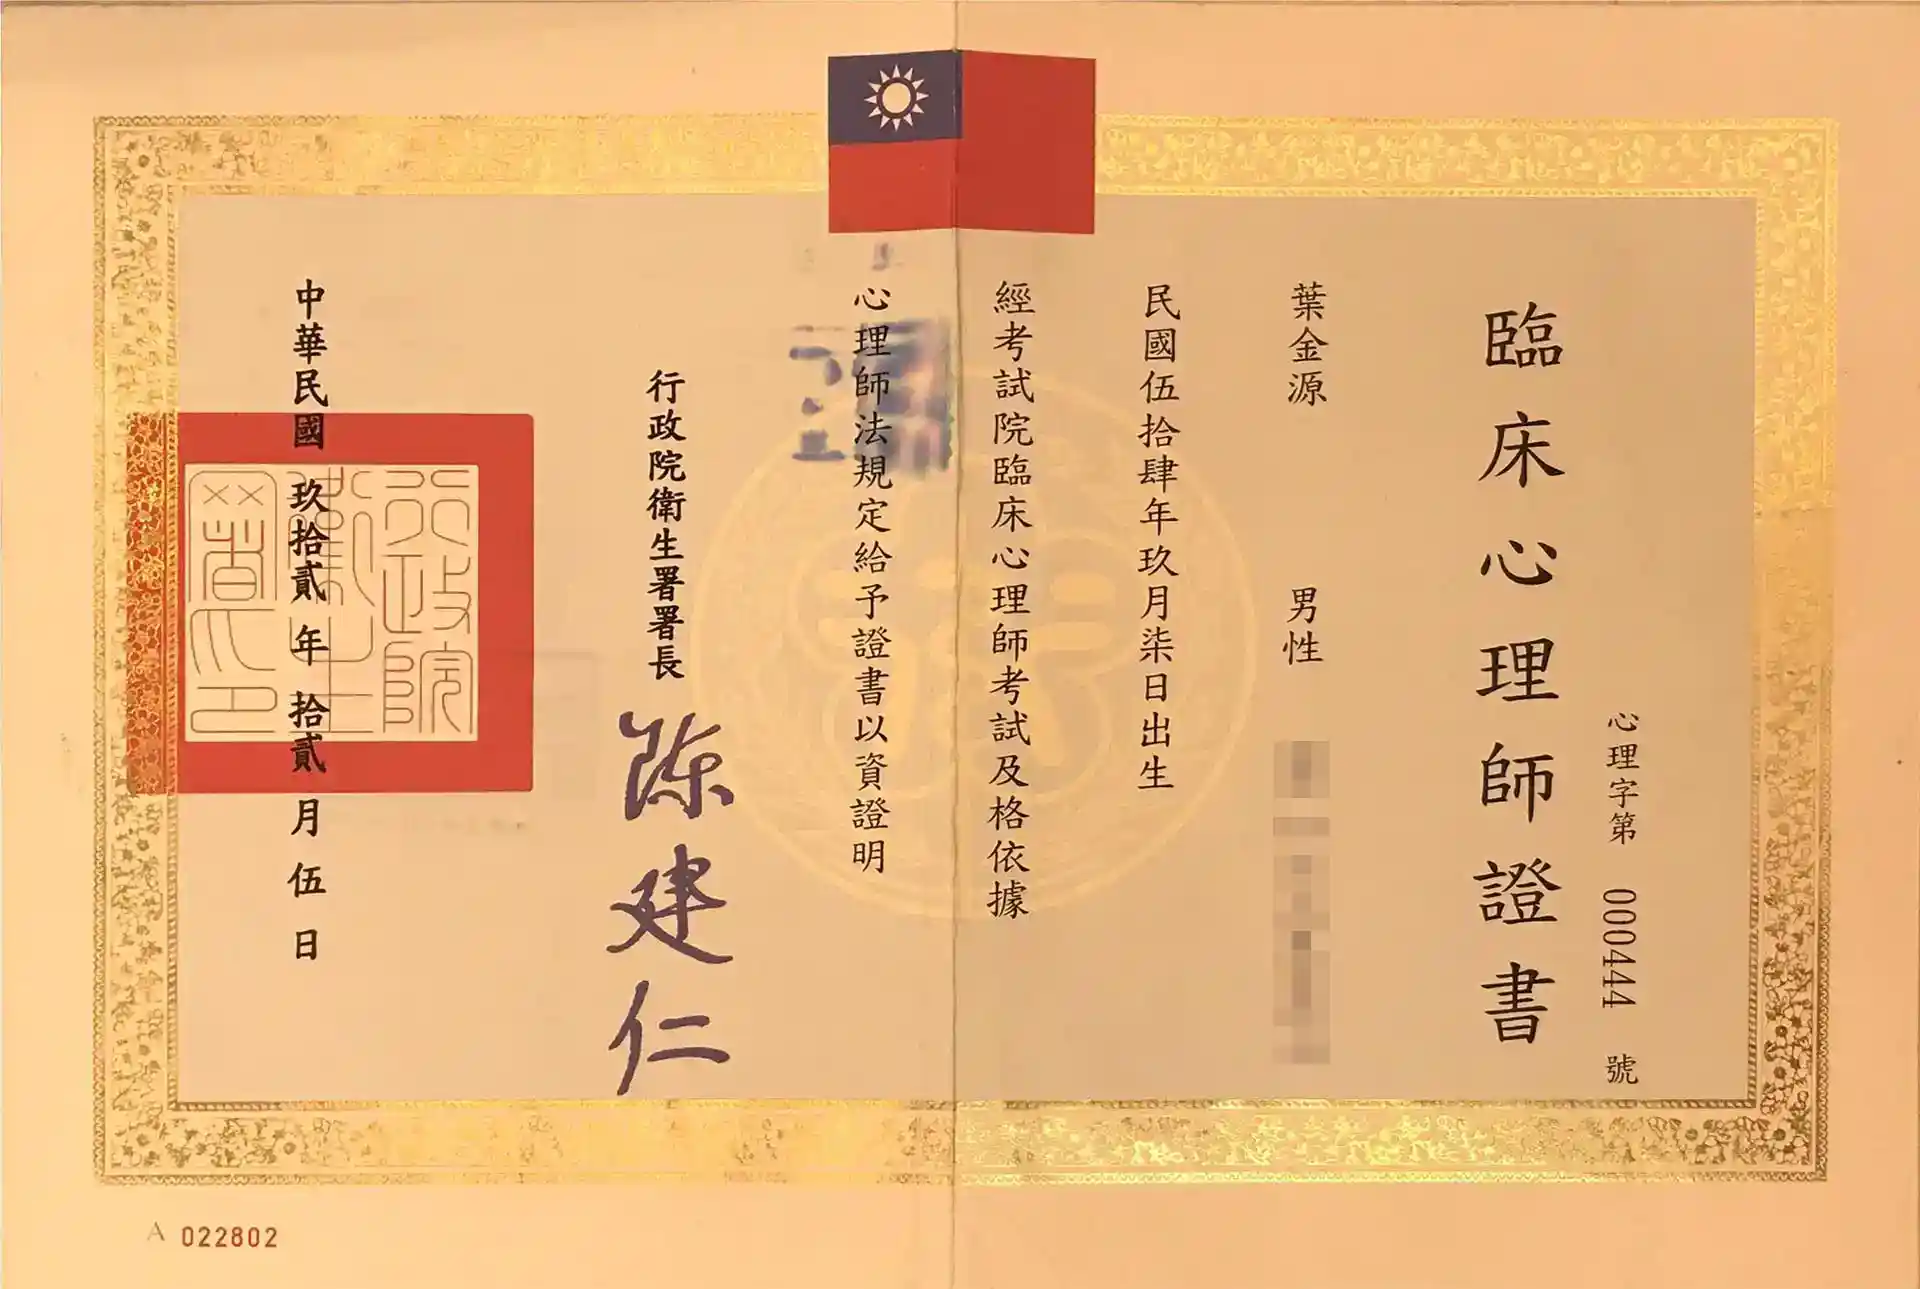 臨床心理師證書
心理字第 000444 號
葉金源 男性
民國伍拾肆年玖月柒日出生
經考試院臨床心理師考試及格依據
心理師法規定給予證書以資證明
行政院衛生署署長 陳建仁
中華民國 玖拾貳 年 拾貳 月 伍 日
行政院衛生署印
A 022802